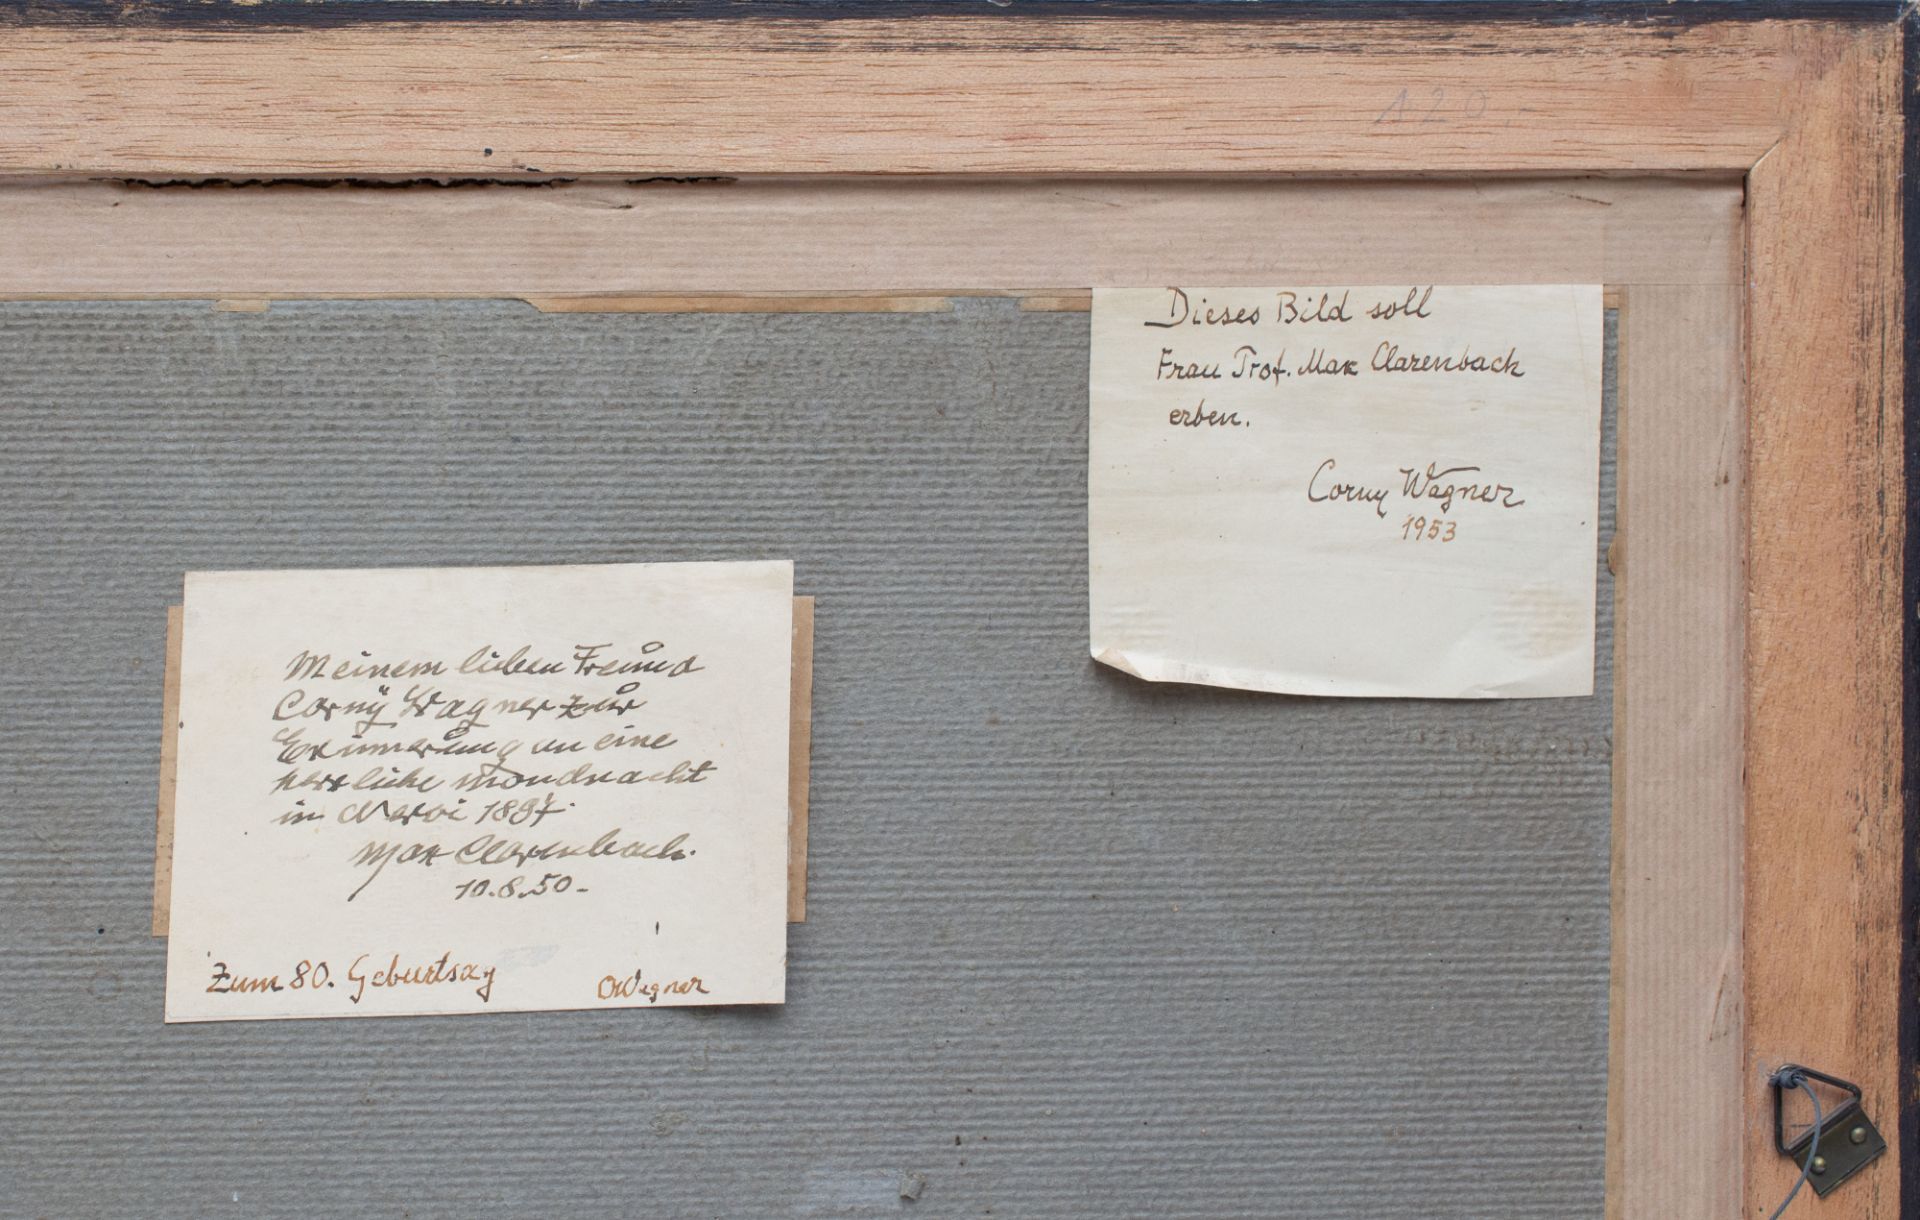 120,-
Dieses Bild soll
Frau Prof. Max Clarenbach
erben.
Corny Wagner
1953
Meinem lieben Freund
Corny Wagner zur
Erinnerung an eine
herrliche Mondnacht
in Nervi 1897.
Max Clarenbach.
10.8.50-
Zum 80. Geburtstag
CWagner